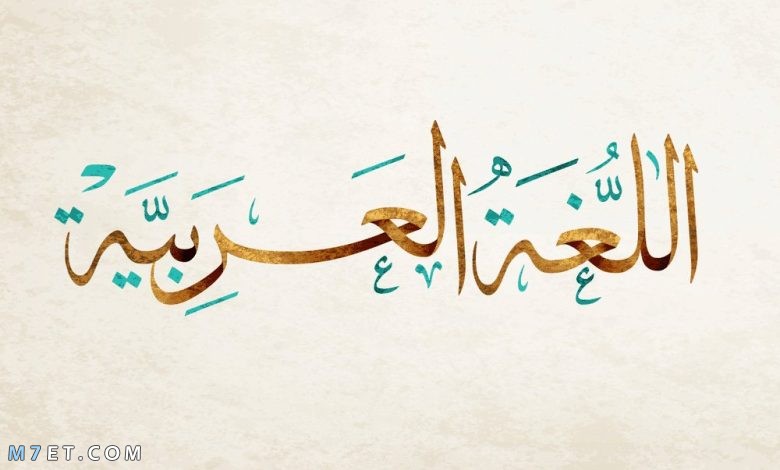 اللُّغَة العَرَبِيَّة
M7ET.COM